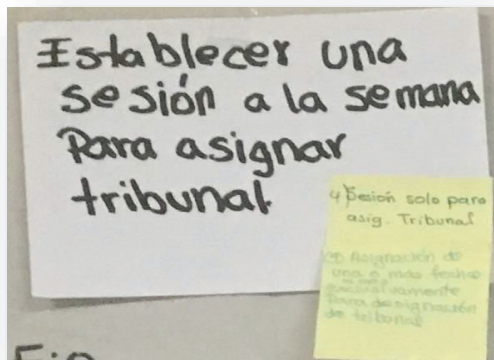 Establecer una
sesión a la semana
Para asignar
tribunal
4) Sesión solo para
asig. Tribunal
Asignación de
una o más fechas
exclusivamente
para designación
de tribunal